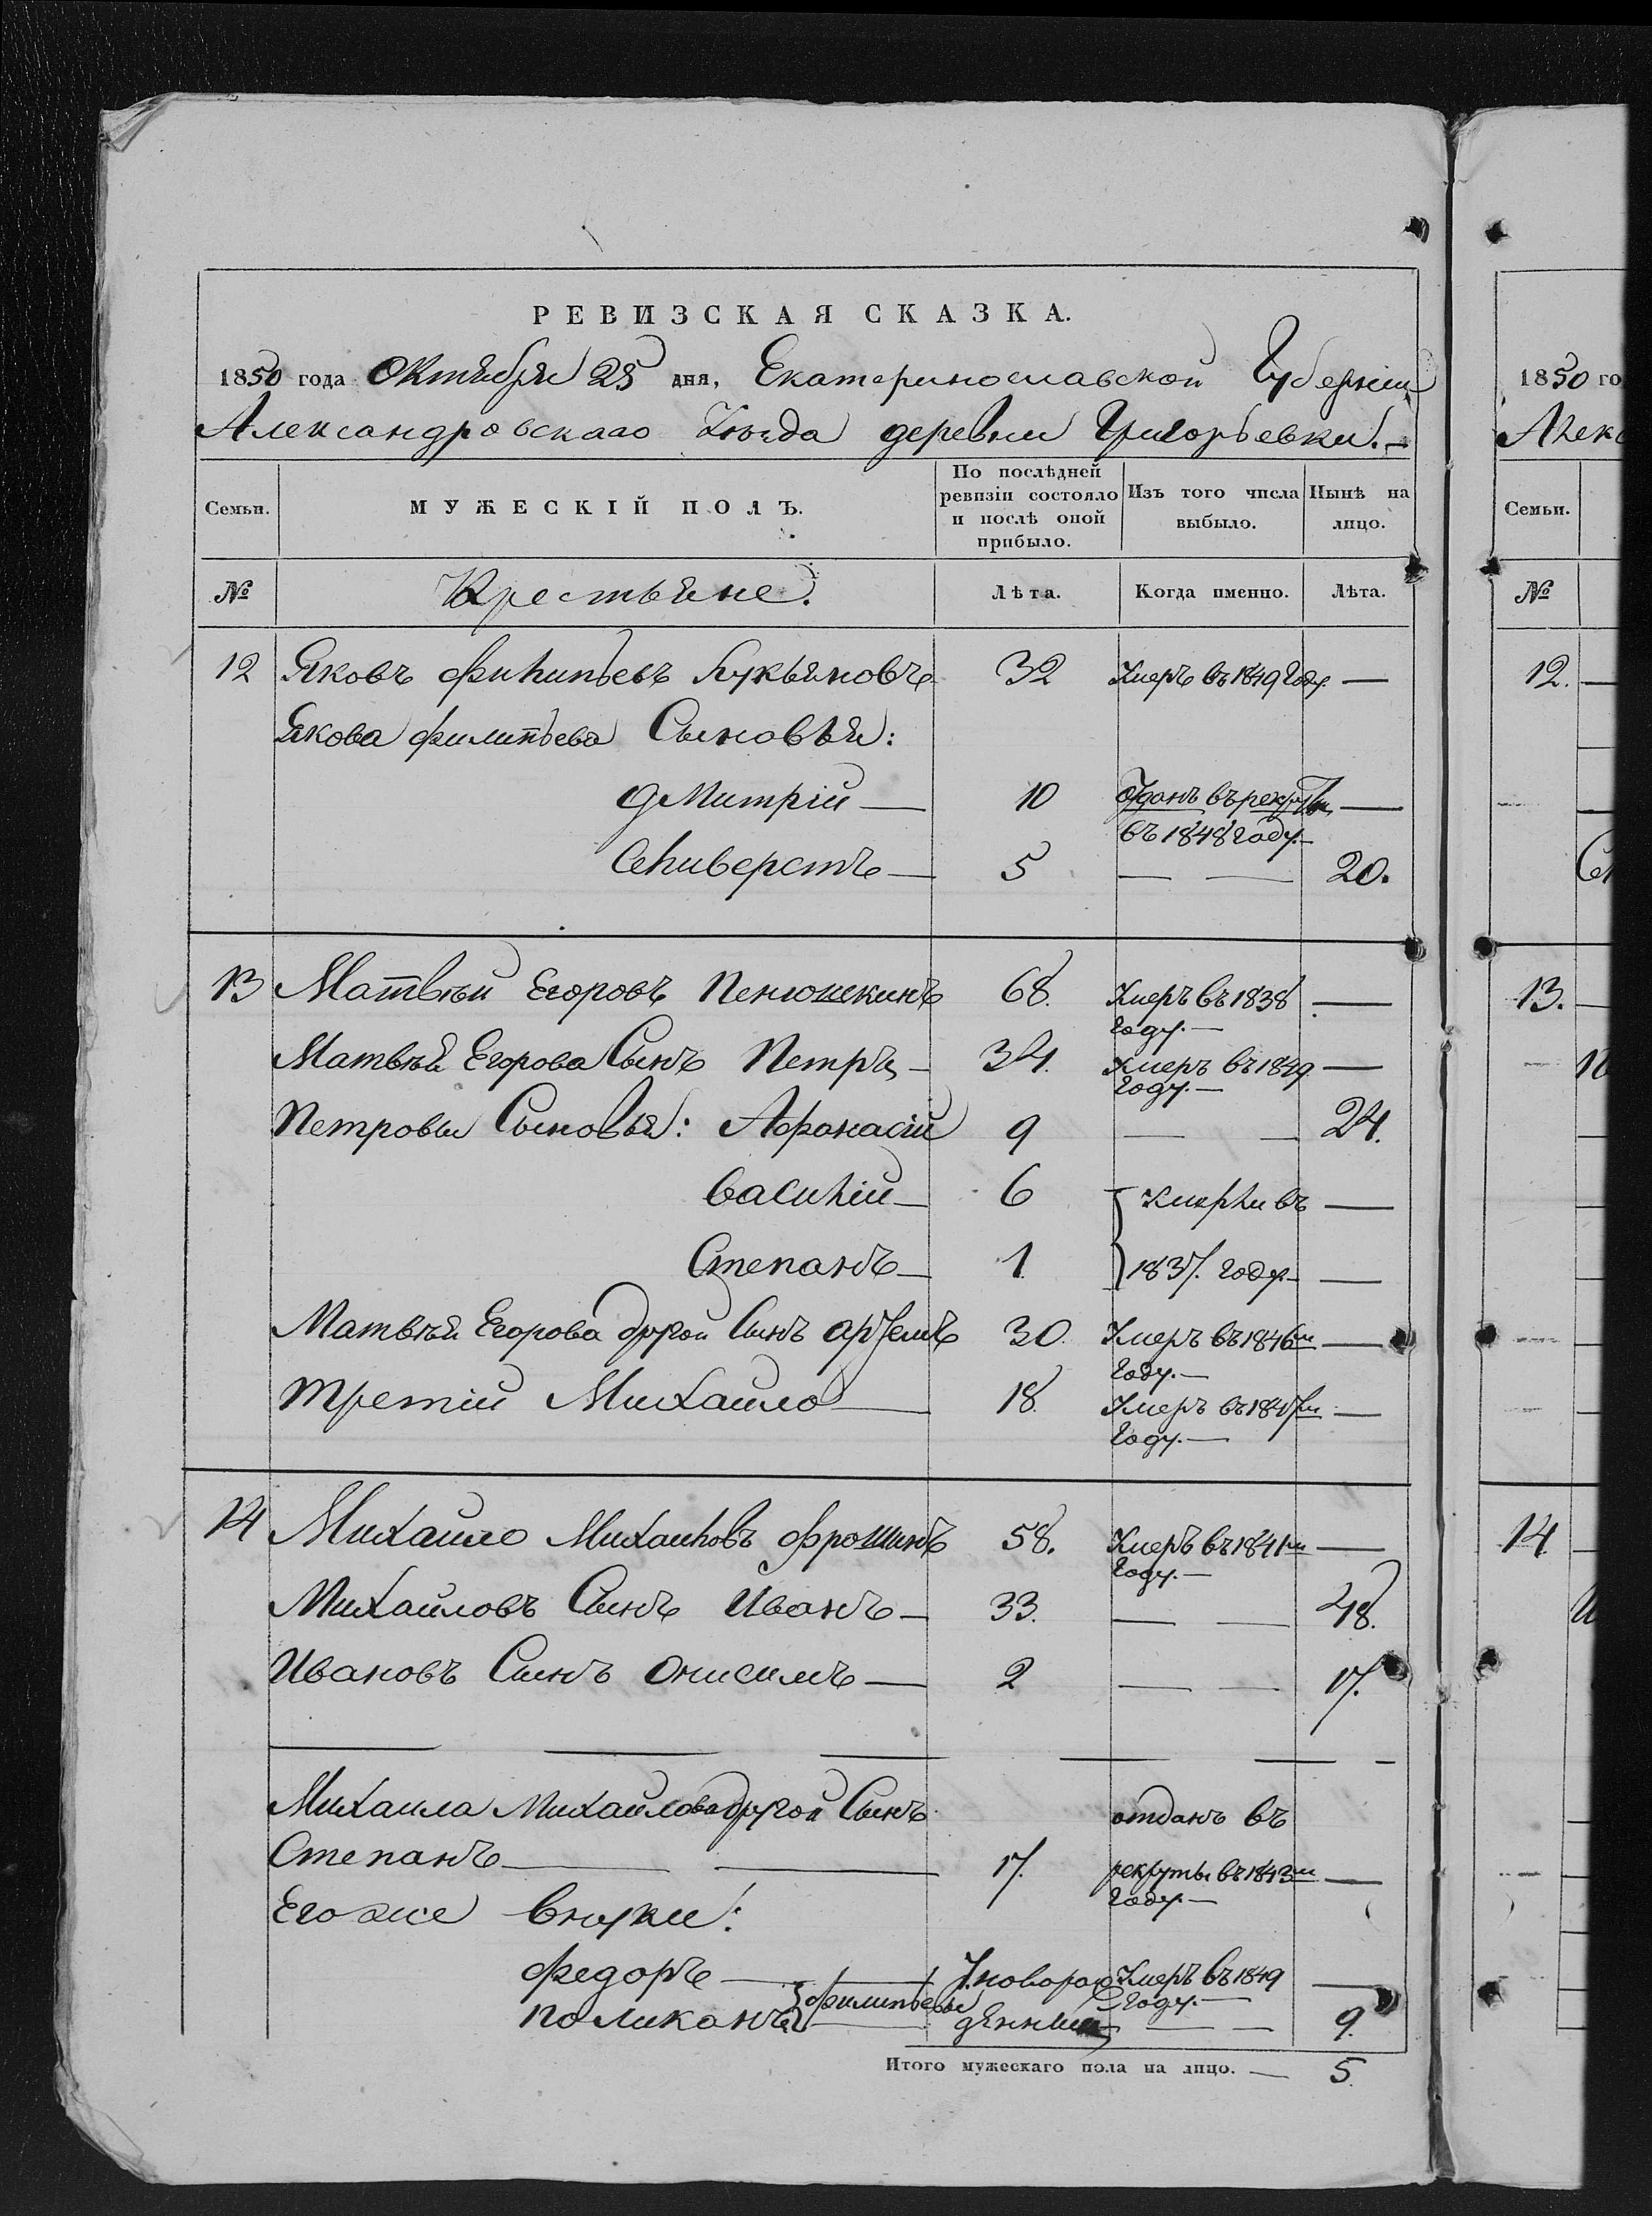 РЕВИЗСКАЯ СКАЗКА.
1850 года Октября 25 дня, Екатеринославской Губерніи
Александровскаго Уѣзда деревни Григорьевки.—
Семьи. МУЖЕСКІЙ ПОЛЪ. По послѣдней ревизіи состояло и послѣ оной прибыло. Изъ того числа выбыло. Нынѣ на лицо.
№ Крестьяне. Лѣта. Когда именно. Лѣта.
12 Яковъ Филипьевъ Лукьяновъ 32 Умеръ въ 1849 году. —
Якова Филипьева Сыновья:
Дмитрій — 10 Отданъ въ рекруты въ 1848 году. —
Селиверстъ — 5 — — 20.
13 Матвѣй Егоровъ Пенюшкинъ 68. Умеръ въ 1838 году. — —
Матвѣя Егорова Сынъ Петръ — 34. Умеръ въ 1849 году. — —
Петровы Сыновья: Афанасій 9 — — 24.
Василій — 6 Умерли въ —
Степанъ — 1. 1837. году — —
Матвѣя Егорова другой Сынъ Артемъ 30. Умеръ въ 1846м году. — —
Третій Михайло — 18. Умеръ въ 1847м году. — —
14 Михайло Михайловъ Фрошинъ 58. Умеръ въ 1841м году. — —
Михайловъ Сынъ Иванъ — 33. — — 48.
Ивановъ Сынъ Онисимъ — 2 — — 17.
Михаила Михайлова другой Сынъ
Степанъ — — 17. отданъ въ рекруты въ 1843м году. — —
Его же внуки:
Федоръ — Филипьевы 7. Умеръ въ 1849 году. — —
Поликанъ новорожденный — — 9.
Итого мужескаго пола на лицо. — 5.
1850 го
Алекс
Семьи.
№
12.
Сел
13.
П
14
И